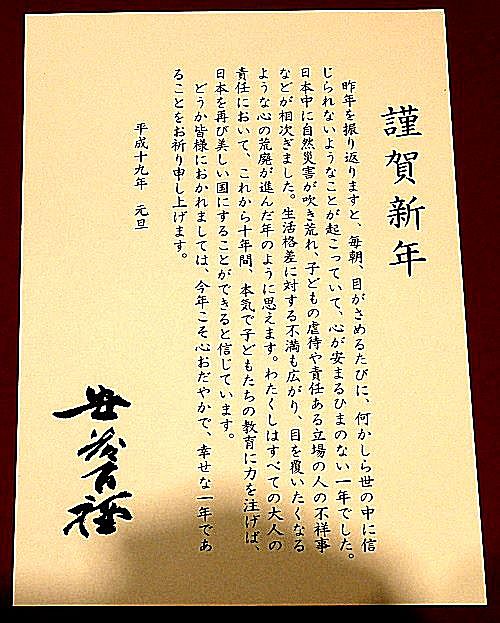 謹賀新年
昨年を振り返りますと、毎朝、目がさめるたびに、何かしら世の中に信
じられないようなことが起こっていて、心が安まるひまのない一年でした。
日本中に自然災害が吹き荒れ、子どもの虐待や責任ある立場の人の不祥事
などが相次ぎました。生活格差に対する不満も広がり、目を覆いたくなる
ような心の荒廃が進んだ年のように思えます。わたくしはすべての大人の
責任において、これから十年間、本気で子どもたちの教育に力を注げば、
日本を再び美しい国にすることができると信じています。
どうか皆様におかれましては、今年こそ心おだやかで、幸せな一年であ
ることをお祈り申し上げます。
平成十九年 元旦